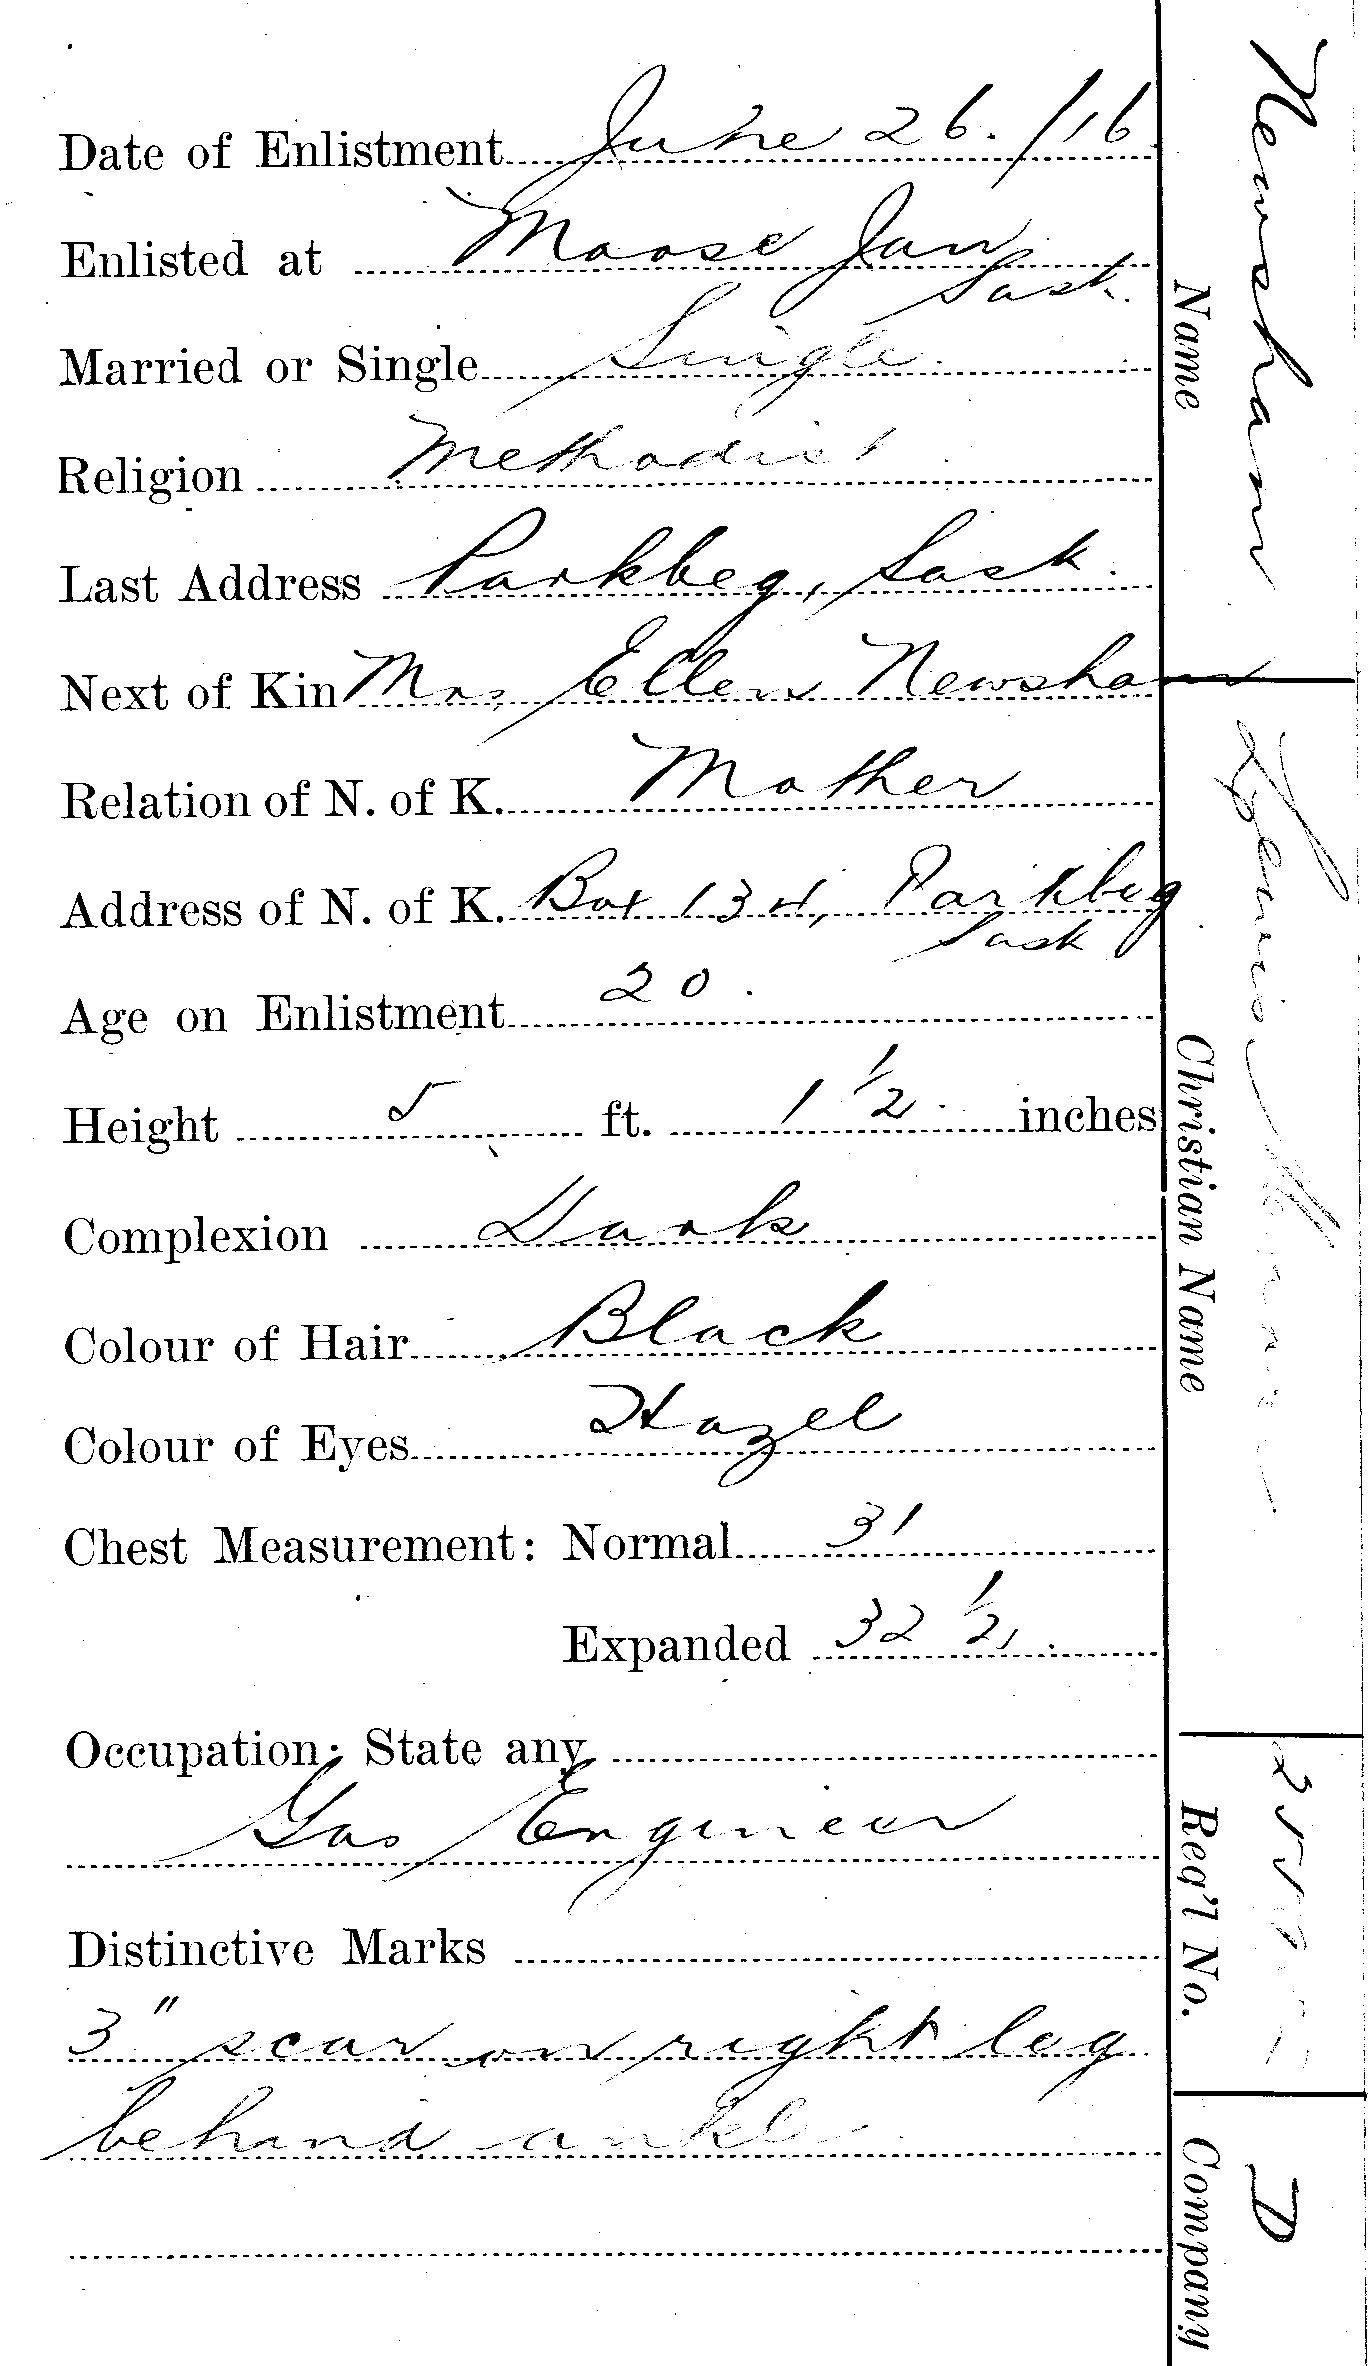 Date of Enlistment June 26. /16
Enlisted at Moose Jaw
Sask.
Married or Single Single.
Religion Methodist
Last Address Parkbeg, Sask.
Next of Kin Mrs Ellen Newsham
Relation of N. of K. Mother
Address of N. of K. Box 134, Parkbeg
Sask
Age on Enlistment 20.
Height 5 ft. 1 1/2 inches
Complexion Dark
Colour of Hair Black
Colour of Eyes Hazel
Chest Measurement: Normal 31
Expanded 32 1/2
Occupation: State any
Gas Engineer
Distinctive Marks
3" scar on right leg
behind ankle
Newsham
Name
Christian Name
Req'l No.
D
Company